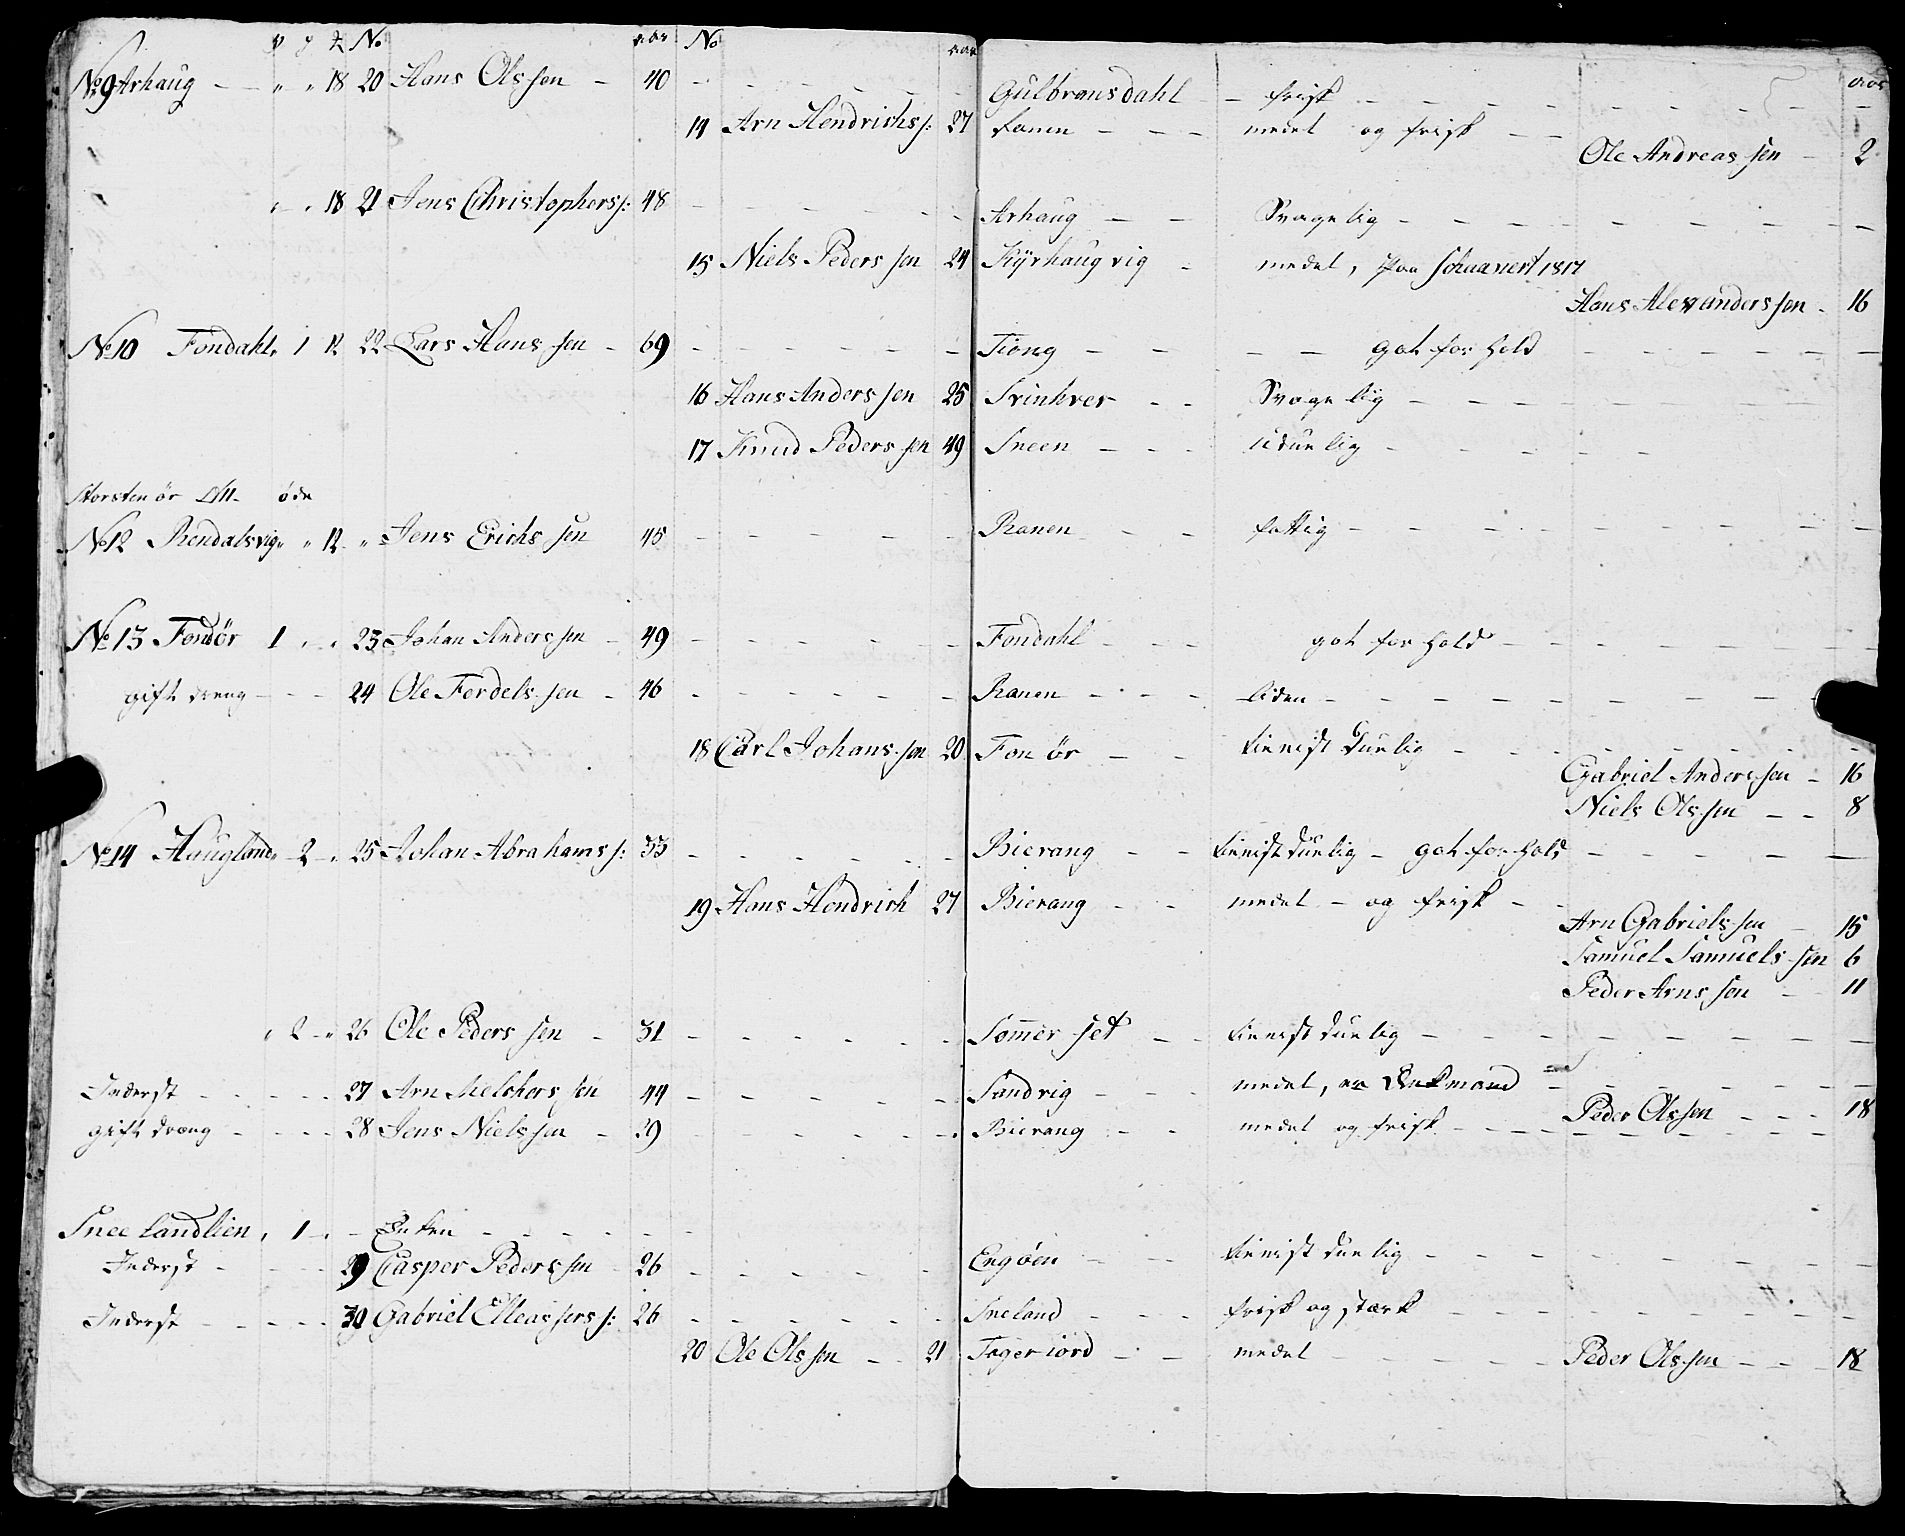 V y № aar № aar aar
№ 9 Arhaug - - " " 18 20 Hans Olssen - 40 - - - - - Gulbransdahl - frisk - - - -
14 Arn Hendrichs: 27 - - - medel og frisk - -
Ole Andreassen - 2
" " 18 21 Jens Christophers: 48 - - - - - Arhaug - - Svagelig - - - -
15 Niels Pederssen 24 medel, Paa 1817
Hans Alexanderssen - 16
№ 10 Fondahl " 1 12 22 Lars Hanssen - 69 - - - - - Tiong - - - - got forhold - - - -
16 Hans Anderssen 25 Svinhver - - Svagelig - - - -
17 Knud Pederssen 49 Sneen - - - uduelig - - - -
Storstenør øde
№ 12 Rendalsvig " " 12 " Jens Erichssen 45 - - - - - Ranen - - fattig - - - -
№ 13 Fondør 1 " " 23 Johan Anderssen - 49 - - - - - Fondahl - - - got forhold - - - -
gift dreng - - - 24 Ole Ferdelssen - 46 - - - - - Ranen - - - liden - - - -
18 Carl Johanssen 20 Fonør - - tienist duelig - - - -
Gabriel Anderssen - 16
Niels Olssen - - 8
№ 14 Haugland " 2 " 25 Johan Abrahams: 33 - - - - - Bierang - - tienist duelig - got forhold - - - -
19 Hans Hendrich 27 Bierang - - medel - og frisk - -
Arn Gabrielssen - 15
Samuel Samuelssen 6
Peder Arnssen - 11
" 2 " 26 Ole Pederssen - 31 - - - - - Sommerset - - tienist duelig - - - -
Inderst - - - - 27 Arn Melcherssen 44 - - - - - Sandvig - - - medel, er Enkmand - - - -
Peder Olssen - - - 18
gift dræng - - - 28 Jens Nielssen - 29 - - - - - Bierang - - medel og frisk - - - -
Snee landlien " 1 - - Enken - - - -
Inderst - - - 29 Casper Pederssen 26 - - - - - Engøen - - tienist duelig - - - -
Inderst - - - - 30 Gabriel Elleassers: 26 - - - - - Sneland - - - frisk og stærk - - - -
20 Ole Olssen - - 21 Tageriord - - medel - - - - Peder Olssen - - - 18